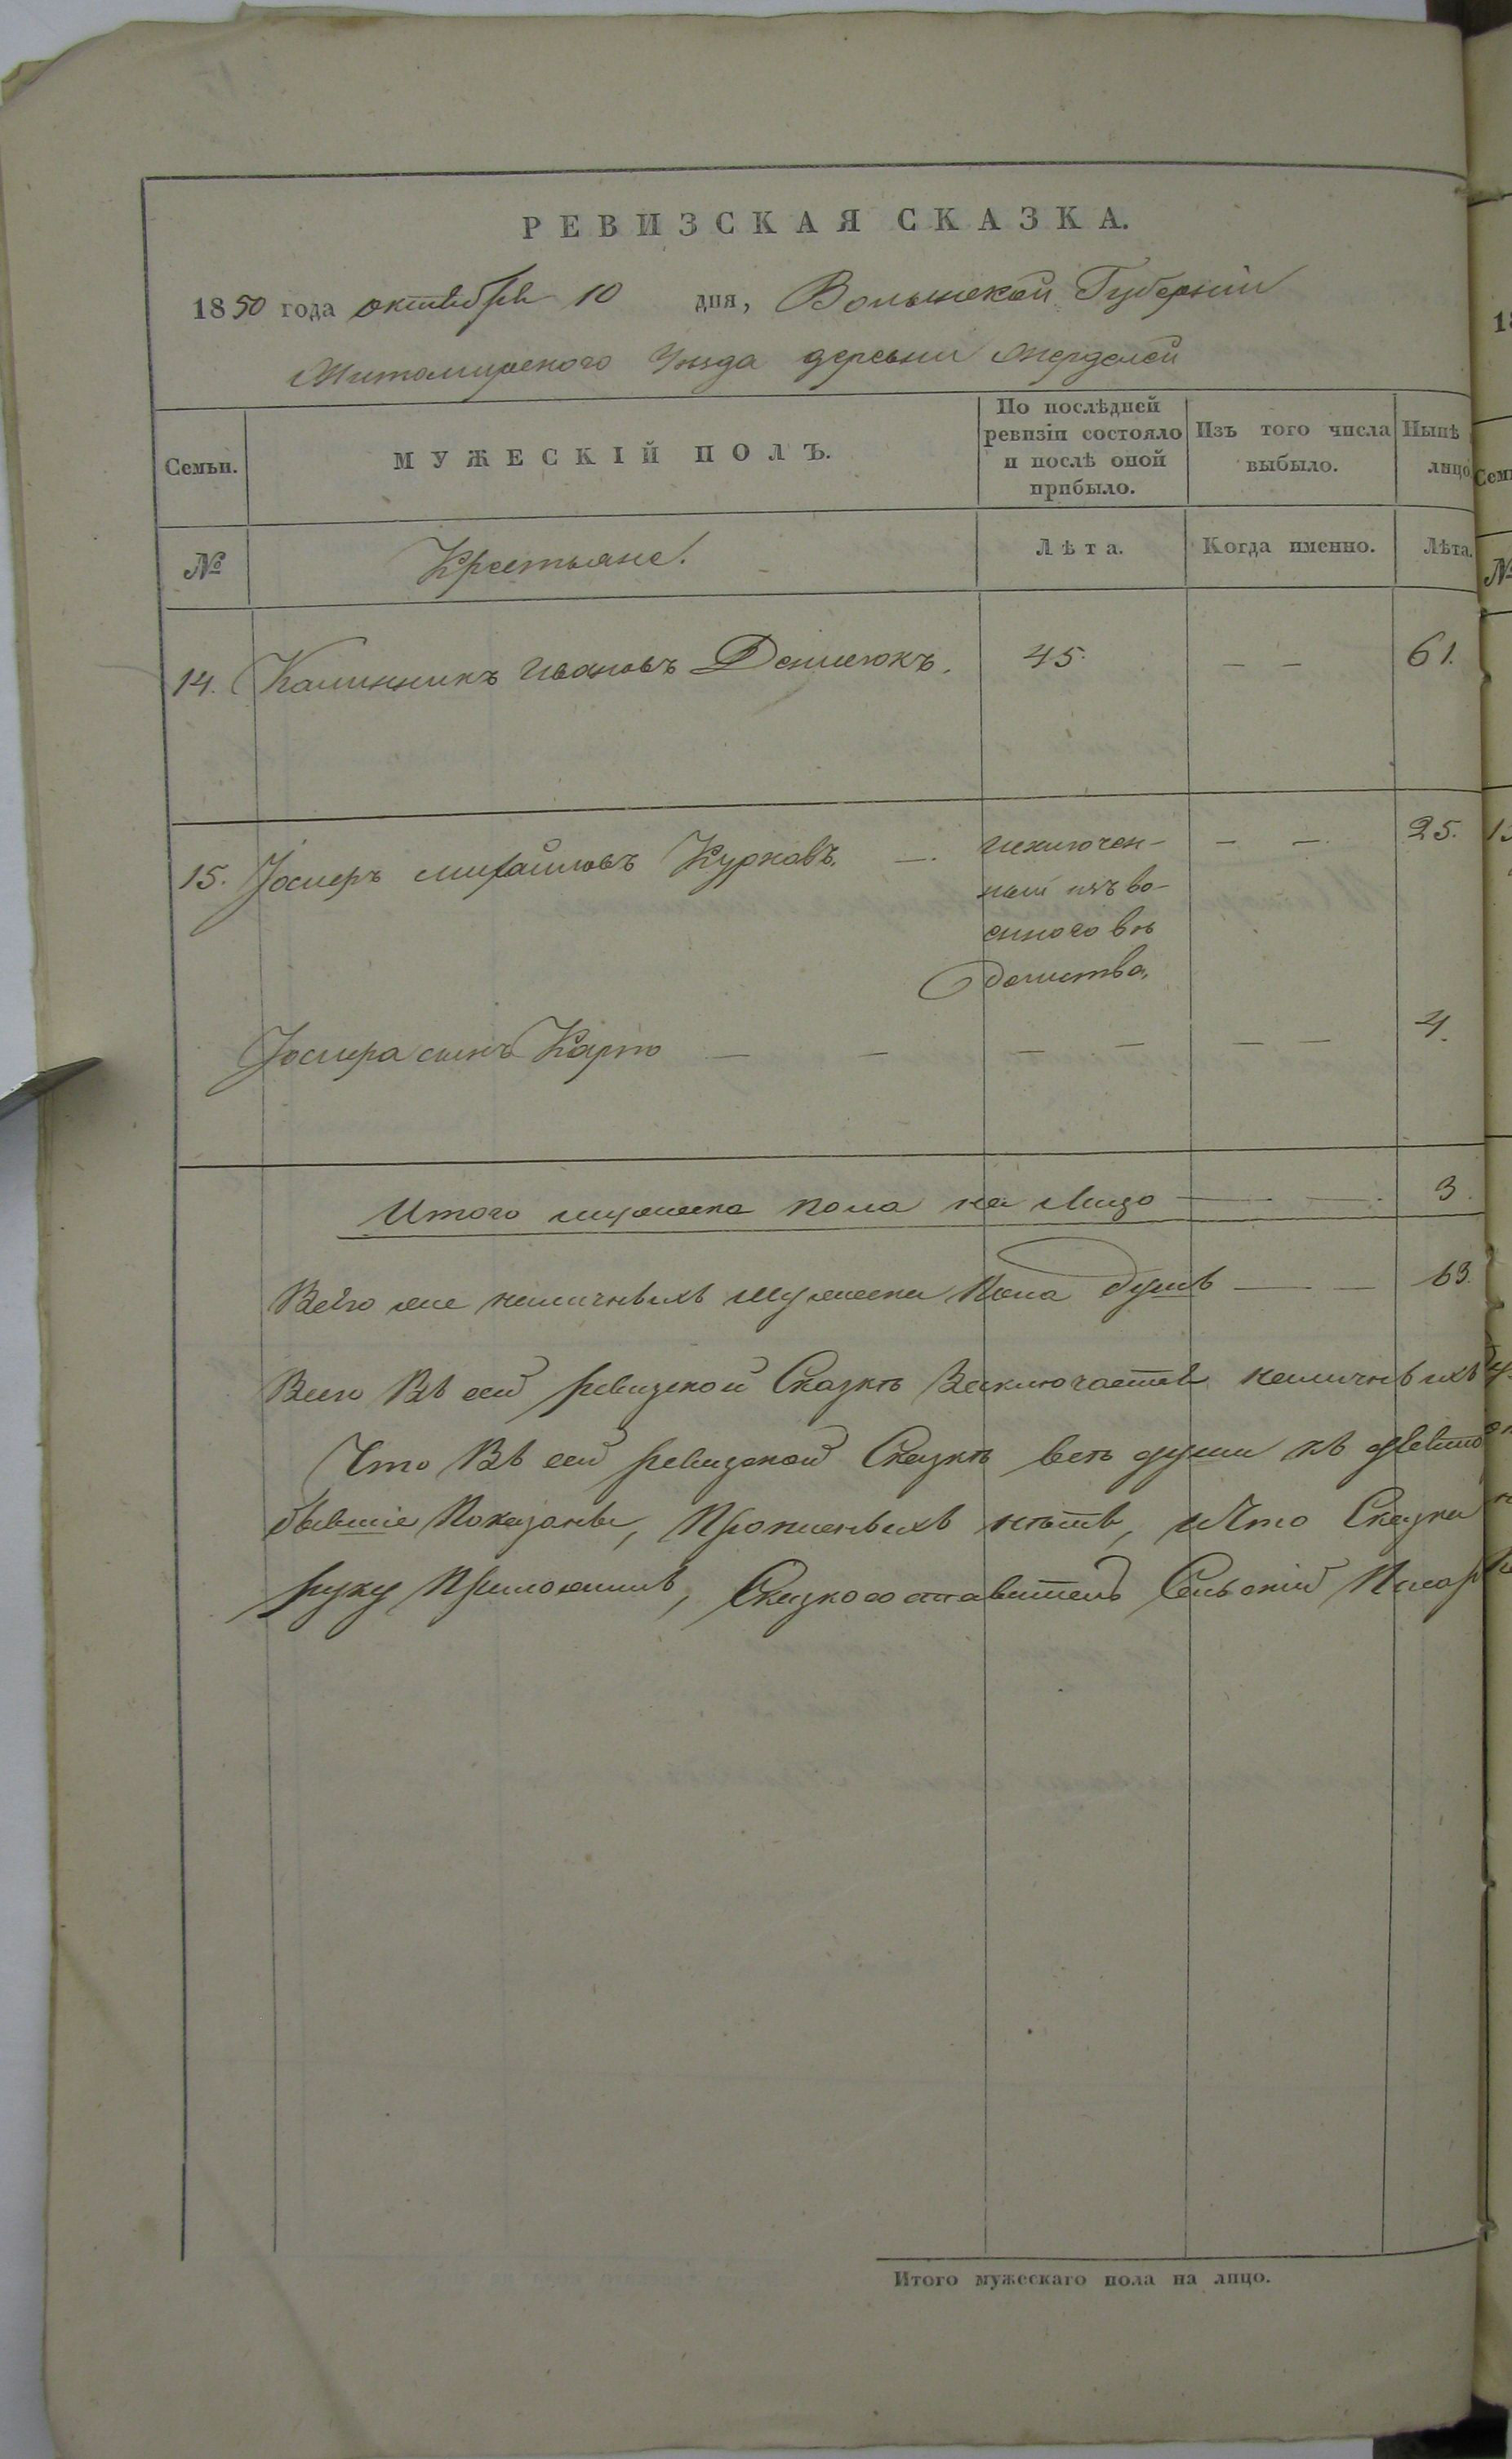 РЕВИЗСКАЯ СКАЗКА.
1850 года октября 10 дня, Волынской Губерніи
Житомирского Уѣзда деревни
Семьи. МУЖЕСКІЙ ПОЛЪ. По послѣдней ревизіи состояло и послѣ оной прибыло. Изъ того числа выбыло. Нынѣ лицо
№ Крестьяне. Лѣта. Когда именно. Лѣта.
14. Калинникъ Ивановъ Денисюкъ. 45. — — 61.
15. Іосифъ Михайловъ Курковъ. — исключен- — — 25.
ный изъ во-
енного вѣ
домства.
Іосифа сынъ Карпо — — — — — — 4.
Итого мужеска пола на Лицо — — 3.
Всего же наличныхъ мужеска Пола душъ — — 63.
Всего Въ сей ревизской Сказкѣ Заключается наличныхъ
Что Въ сей ревизской Сказкѣ всѣ души къ
бывшіе Показаны, Прописныхъ нѣтъ, и Что Сказки
руку Приложилъ, Сказкосоставитель Сельскій Писарь
Итого мужескаго пола на лицо.